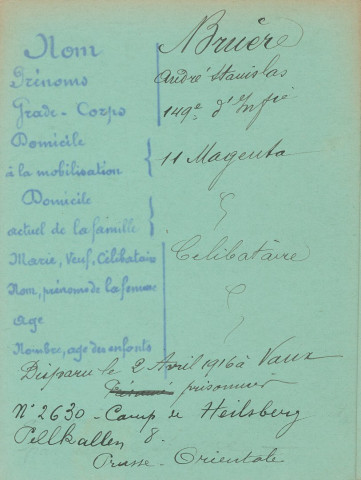 Nom Bruère
Prénoms André Stanislas
Grade - Corps 149e d'Infie
Domicile
à la mobilisation 11 Magenta
Domicile
actuel de la famille
Marié, Veuf, Célibataire Célibataire
Nom, prénoms de la femme
Age
Nombre, âge des enfants
Disparu le 2 Avril 1916 à Vaux
prisonnier
N° 2630 - Camp de Heilsberg
Pillkallen 8.
Prusse - Orientale